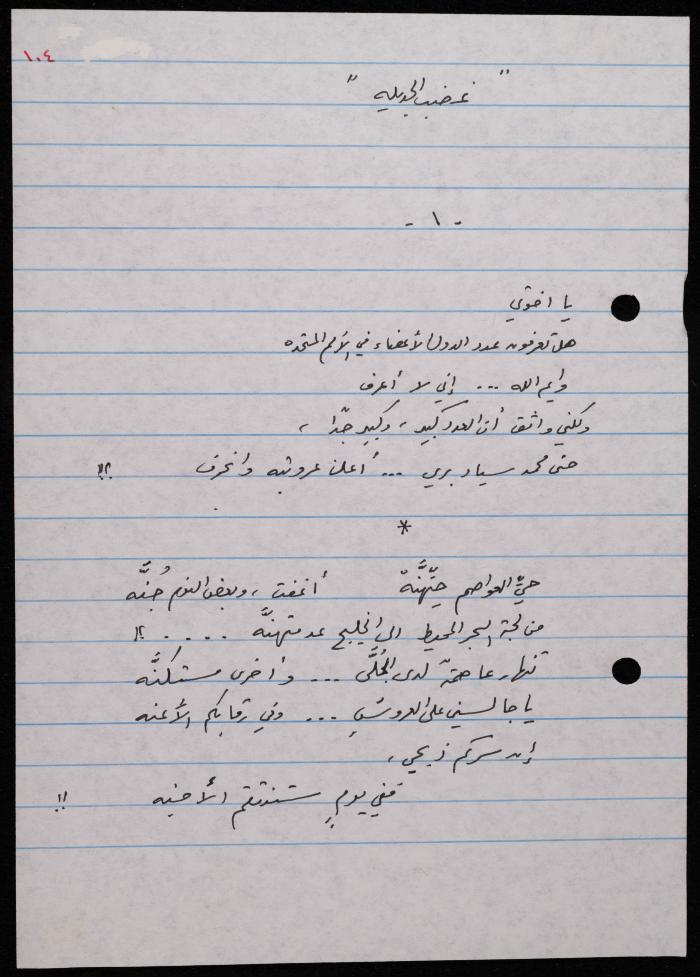 ١٠٤
" غضب الجديله "
- ١ -
يا اخوتي
هل تعرفون عدد الدول الأعضاء في الأمم المتحده
وايم الله ... إني لا أعرف
ولكني واثق أن العدد كبير ، وكبير جدّا ،
حتى محمد سياد بري ... أعلن عروبته وانحرف !!
*
حيِّ العواصم حَيِّهنَّهْ أغفت ، وبعض النوم جُنَّه
من لجة البحر المحيط الى الخليج عدمتهنَّه ..... !!
تنهار عاصمةٌ لدى الجُلَّى ... وأخرى مستكنَّه
يا جالسين على العروشِ ... وفي رقابكم الأعنه
إن سركم ذبحي ،
ففي يومٍ ستنتقم الأجنه !!